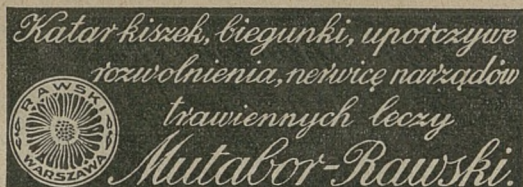 Katar kiszek, biegunki, uporczywe
rozwolnienia, nerwicę narządów
trawiennych leczy
RAWSKI
WARSZAWA
Mutabor-Rawski.